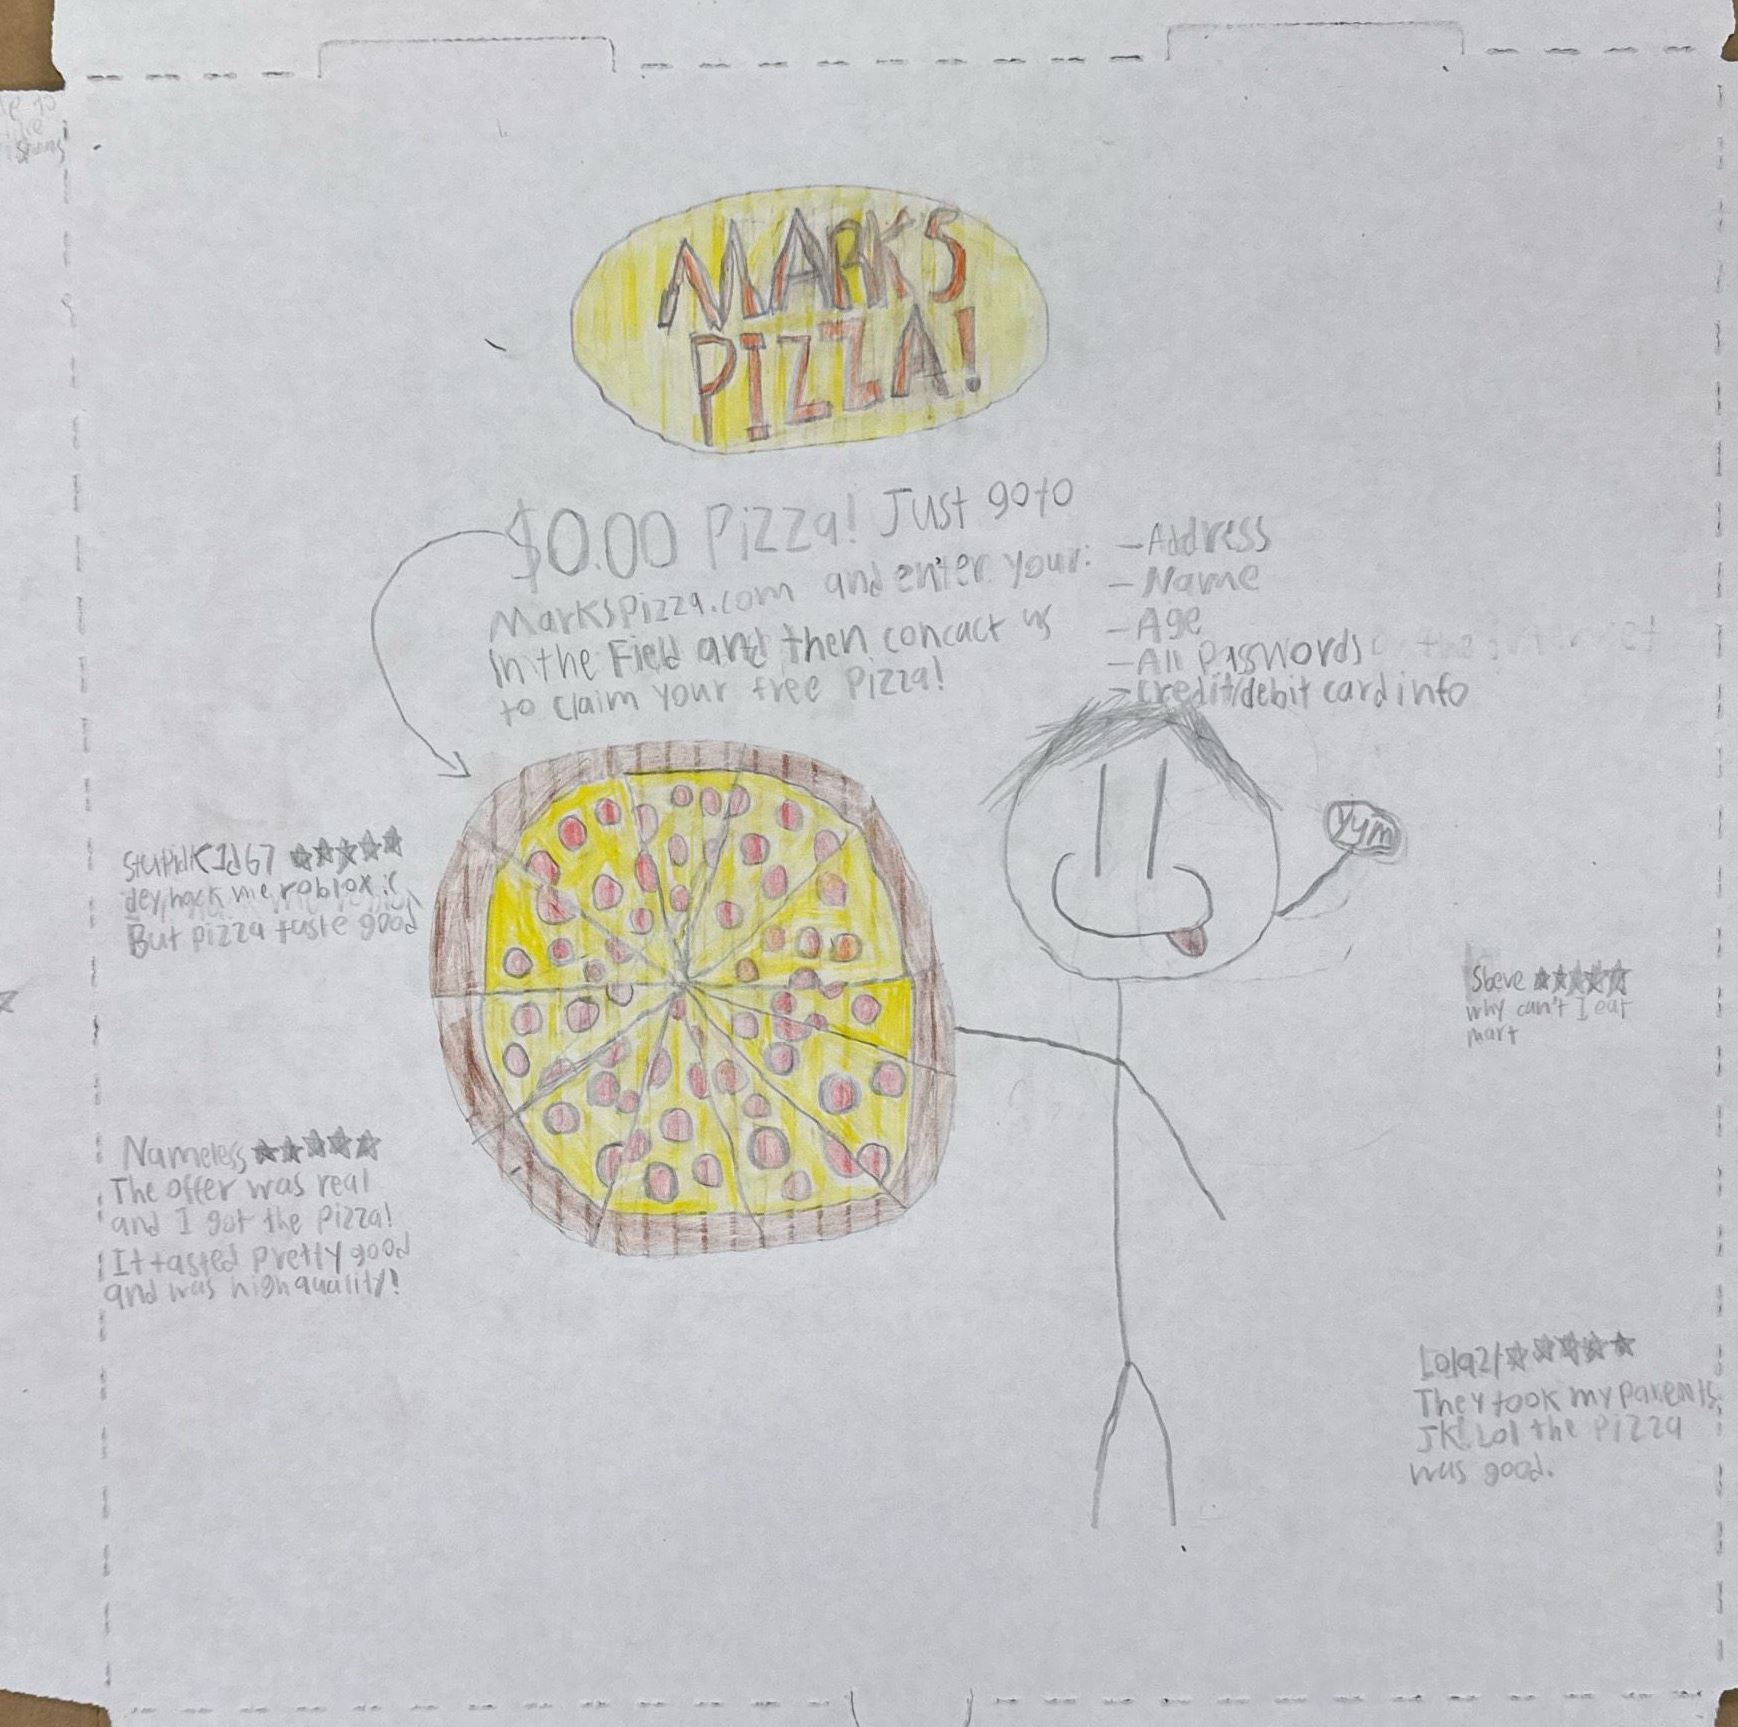 MARKS
PIZZA!
$0.00 Pizza! Just goto
MarksPizza.com and enter your:
in the Field and then concact us
to claim your free Pizza!
-Address
-Name
-Age
-All Passwords
-credit/debit card info
yym
StupidK1d67 ★★★★★
dey hack me roblox
But pizza taste good
Nameless ★★★★★
The offer was real
and I got the pizza!
It tasted pretty good
and was high quality!
Sbeve ★★★★★
why can't I eat
mart
Lola21 ★★★★★
They took my parents
JK! Lol the pizza
was good.